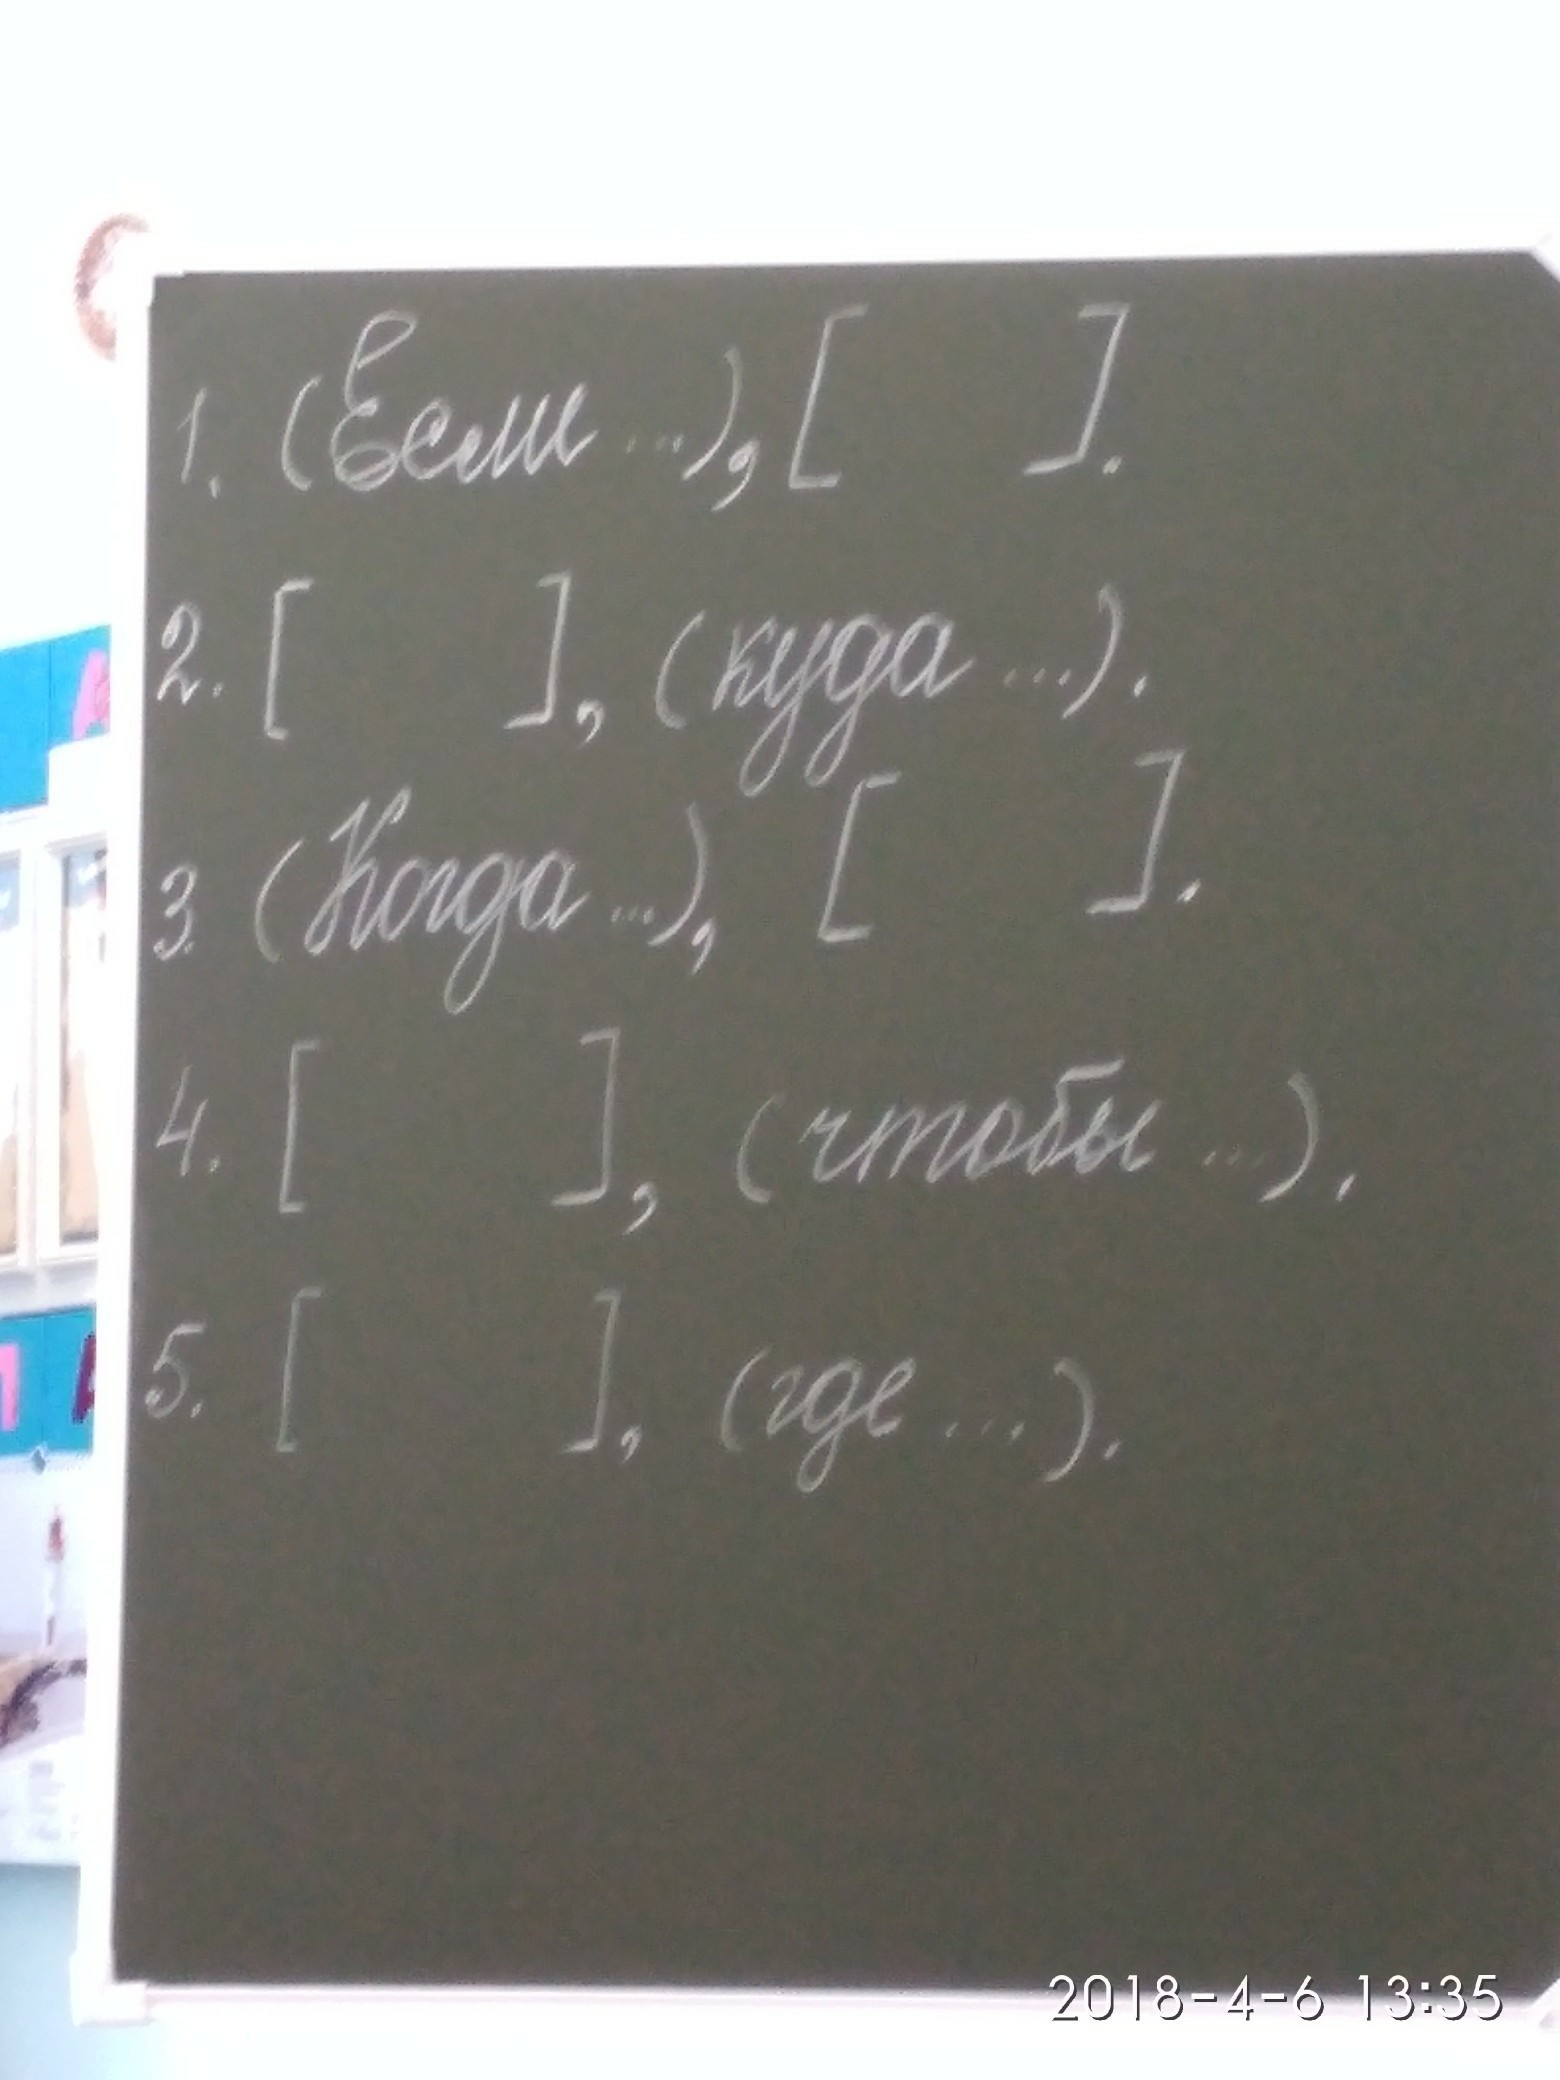 1. (Если ...), [ ].
2. [ ], (куда ...).
3. (Когда ...), [ ].
4. [ ], (чтобы ...).
5. [ ], (где ...).
2018-4-6 13:35